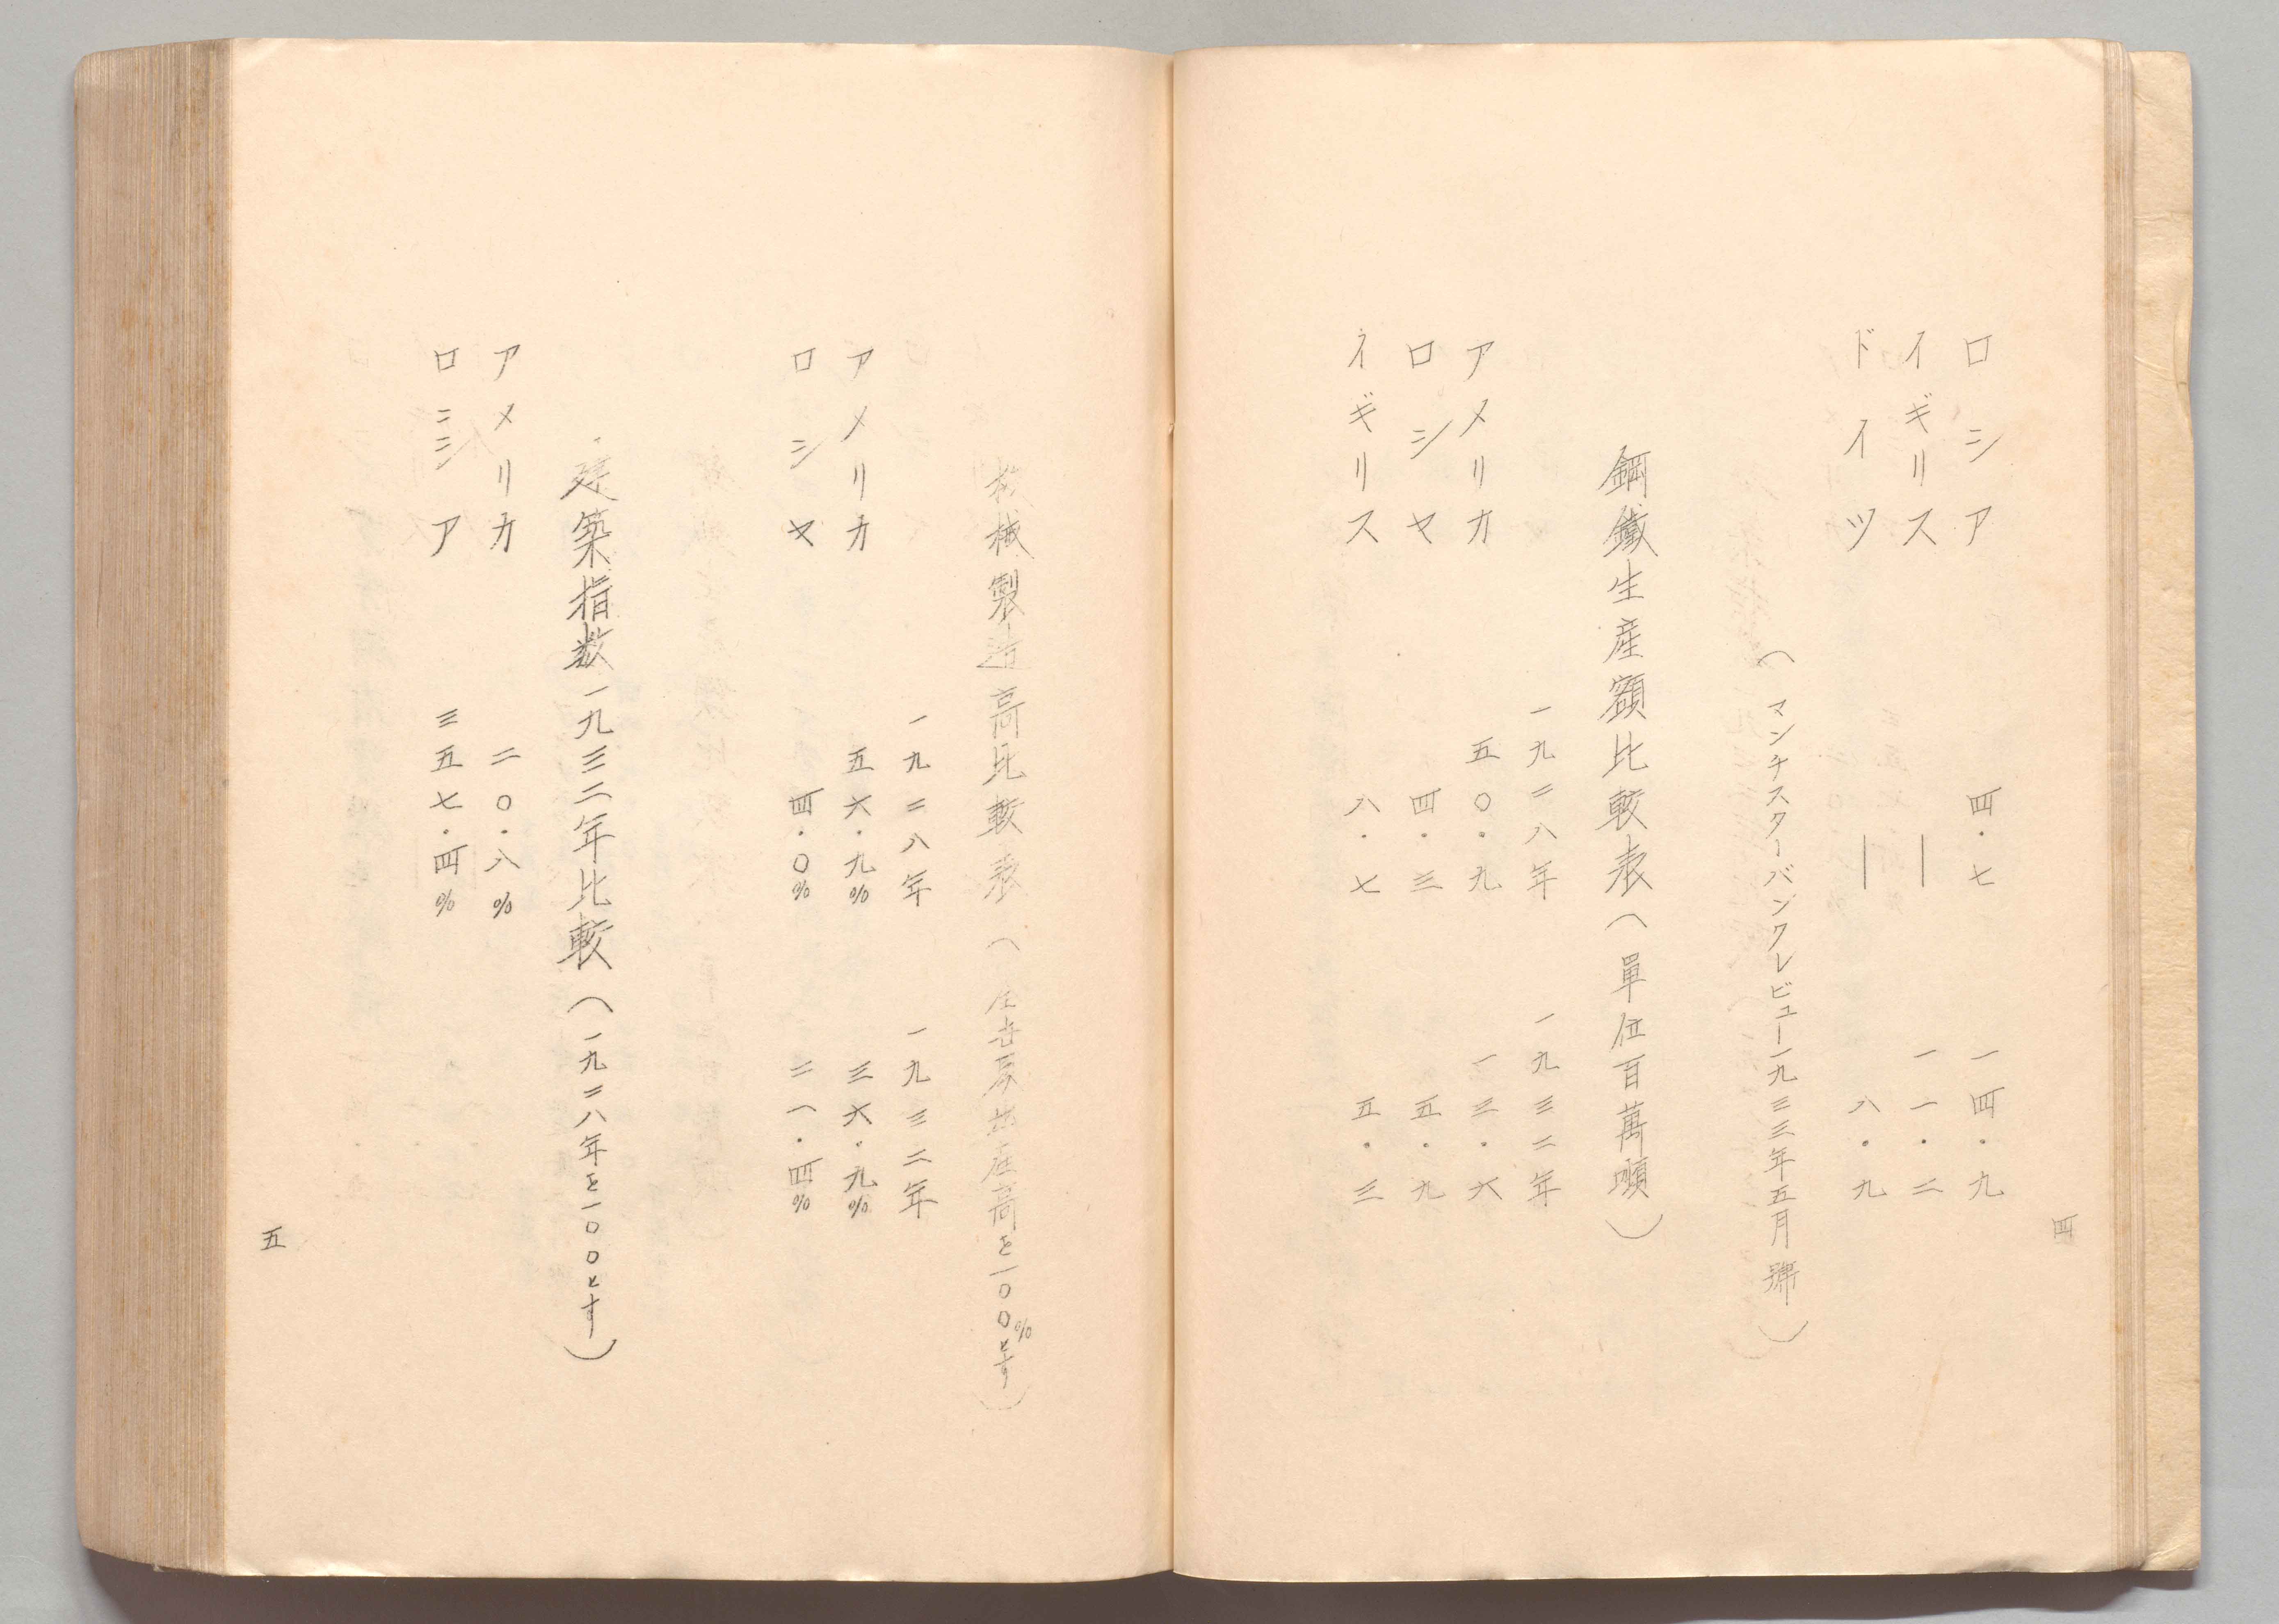 ロシア 四・七 一四・九
イギリス ― 一一・二
ドイツ ― 八・九
（マンチスターバンクレビュー一九三三年五月號）
鋼鐵生産額比較表（單位百萬噸）
一九二八年 一九三二年
アメリカ 五〇・九 一三・六
ロシヤ 四・三 五・九
イギリス 八・七 五・三
四
機械製造高比較表（全世界生産高を一〇〇%とす）
一九二八年 一九三二年
アメリカ 五六・九% 三六・九%
ロシヤ 四・〇% 二一・四%
建築指数一九三二年比較（一九二八年を一〇〇とす）
アメリカ 二〇・八%
ロシア 三五七・四%
五